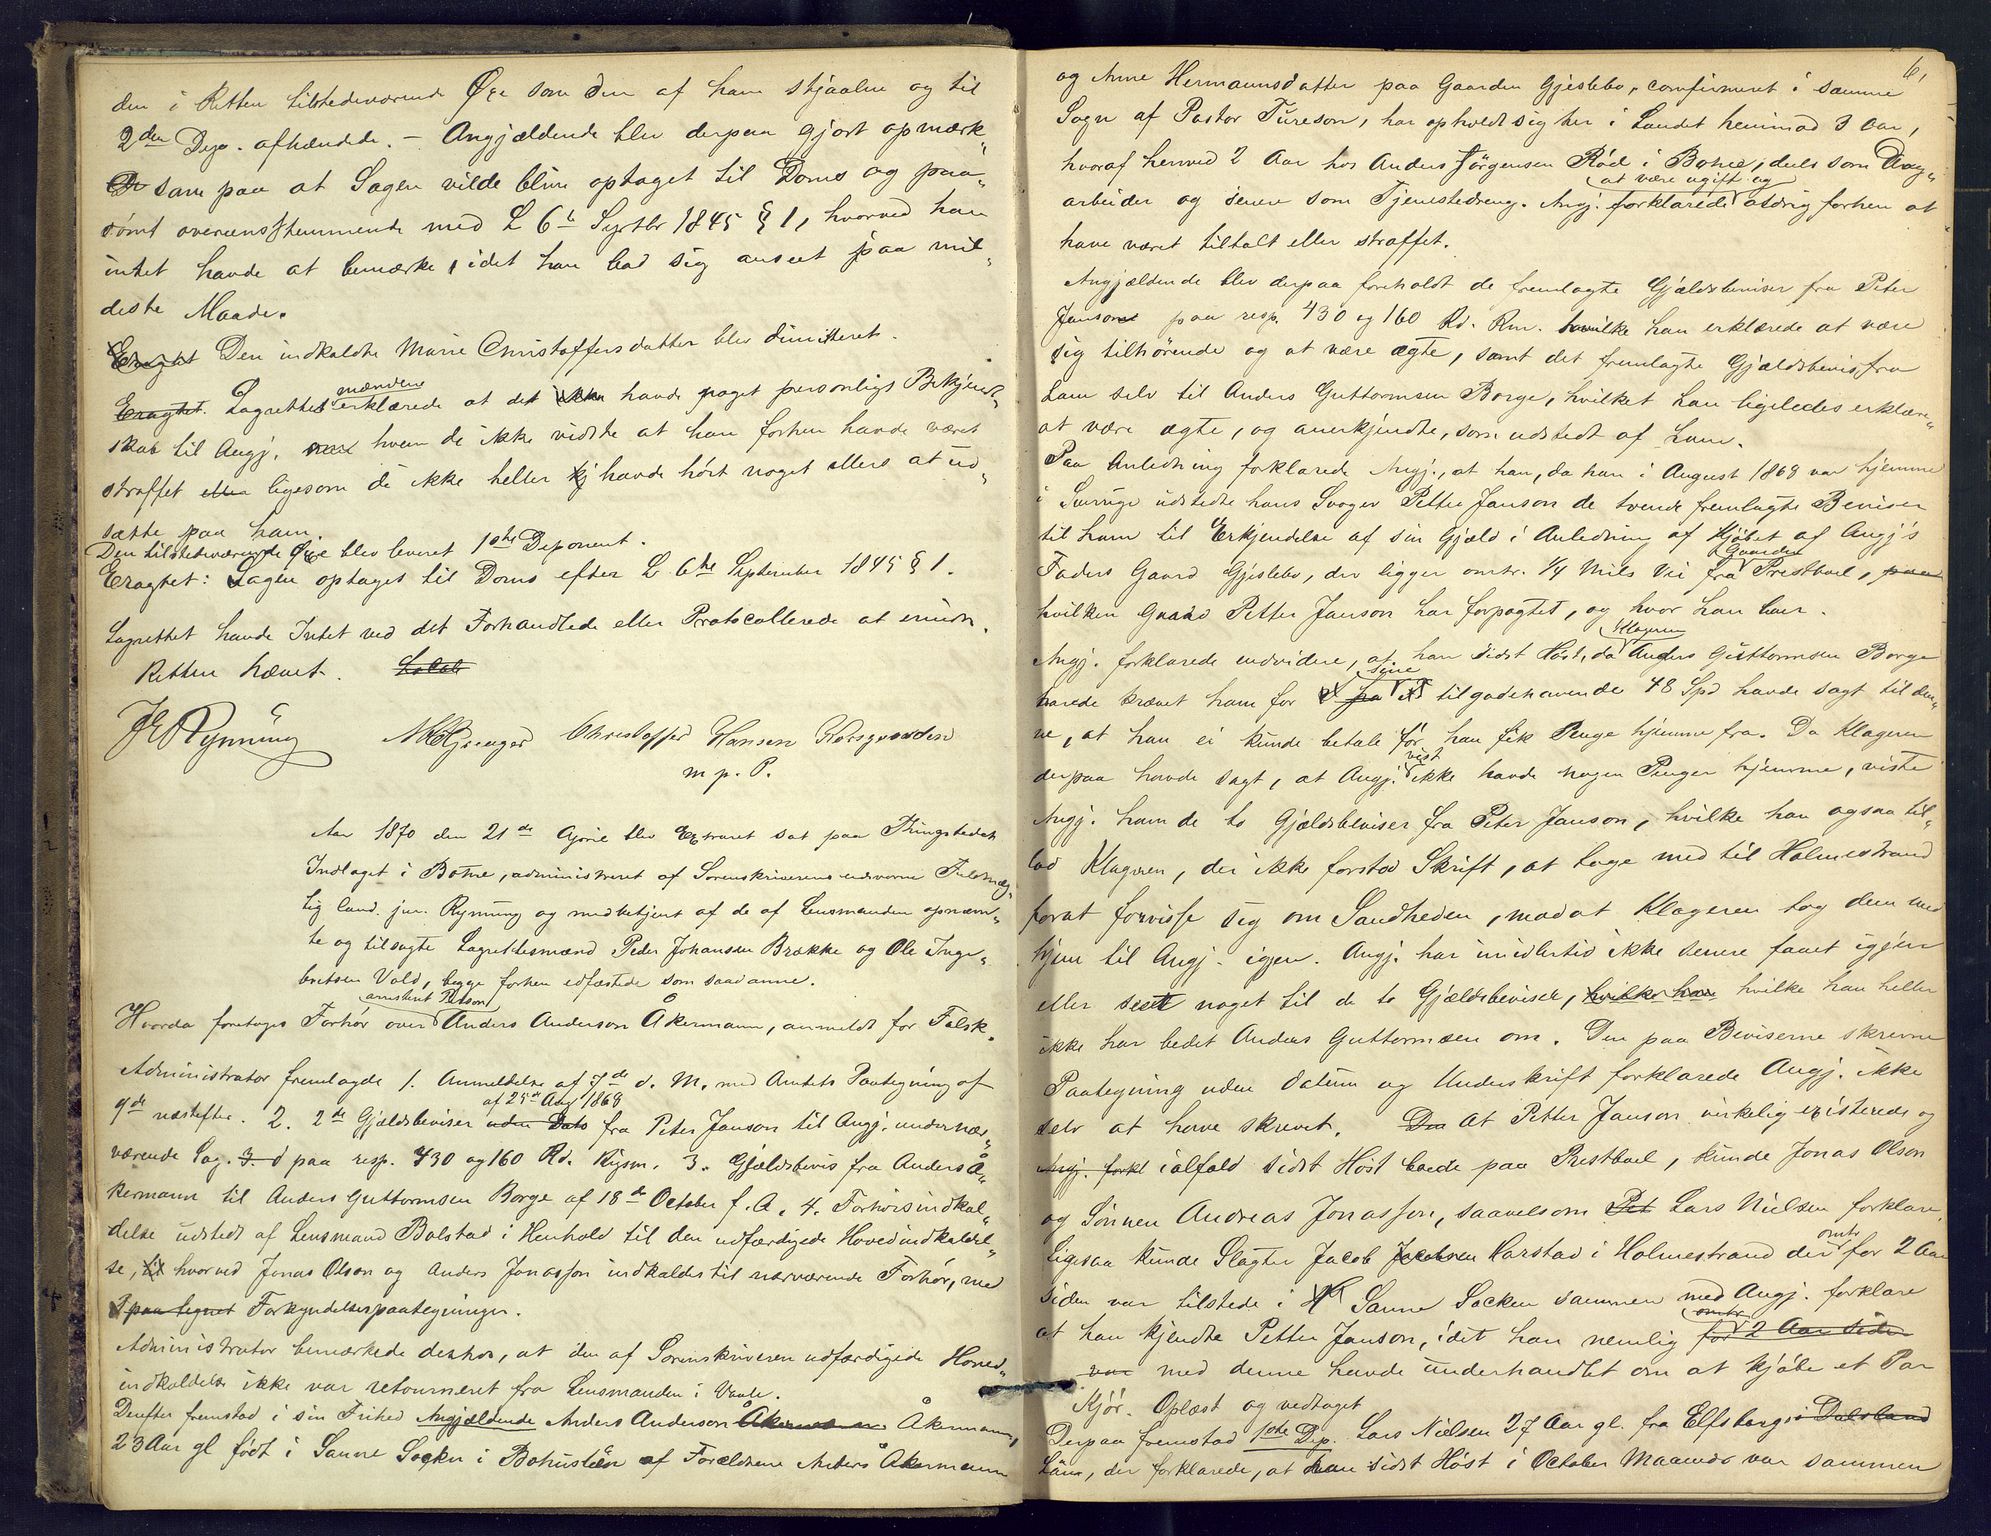 den i Retten tilstedeværende Øxe som den af ham stjaalne og til
2den Dep. afhændede. – Angjældende blev derpaa gjort opmærk„
som paa at Sagen vilde blive optaget til Doms og paa„
overensstemmende med L 6te Septbr 1845 § 1, hvorved han
intet havde at bemærke, idet han bad sig anseet paa mil„
deste Maade.
Eragtet Den indkaldte Marie Christoffersdatter blev dimitteret.
Eragtet. Lagrettesmændene erklærede at de ikke havde noget personligt Bekjend„
skab til Angj. hvem de ikke vidste at han forhen havde været
straffet eller ligesom de ikke heller havde hørt noget ellers at ud„
sætte paa ham.
Den tilstedeværende Øxe blev leveret 1ste Deponent.
Eragtet: Sagen optages til Doms efter L. 6te September 1845 § 1.
Lagrettet havde Intet ved det Forhandlede eller Protocollerede at erindre.
Retten hævet.
Rynning Christoffer Hansen
m. p. P.
Aar 1870 den 21de April blev Extraret sat paa Thingstedet
Indlaget i Botne, administreret af Sorenskriverens edsvorne Fuldmæg„
tig Cand. jur. Rynning og medbetjent af de af Lensmanden opnævn„
te og tilsagte Lagrettesmænd Peder Johansen Brække og Ole Inge„
bretsen Vold, begge forhen edfæstede som saadanne.
arrestert Person
Hvorda foretoges Forhør over Anders Anderson Åkermann, anmeldt for Falsk.
Administrator fremlagde 1. Anmeldelse af 7de d. M. med Amtets Paategning af
9de næstefter. 2. 2de Gjældsbeviser uden Dato af 25de Aug 1869 fra Peter Janson til Angj. under nær„
værende Sag. 3. d paa resp. 430 og 160 Rd. Rigsm. 3. Gjældsbevis fra Anders Å„
kermann til Anders Guttormsen Borge af 18de October f. A. 4. Forhørsindkal„
delse udstedt af Lensmand Bolstad i Henhold til den udfærdigede Hovedindkaldel„
se, til hvorved Jonas Olson og Anders Jonasson indkaldes til nærværende Forhør, med
paategnet Forkyndelsespaategninger.
Administrator bemærkede derhos, at den af Sorenskriveren udfærdigede Hoved„
indkaldelse ikke var retourneret fra Lensmanden i Vaale.
Derefter fremstod i sin Frihed Angjældende Anders Anderson Åkermann,
23 Aar gl født i Sanne Socken i Bohuslän af Forældrene Anders Åkermann
6,
og Anne Hermannsdatter paa Gaarden Gjeslebo, confirmeret i samme
Sogn af Pastor Tureson, har opholdt sig her i Landet henimod 3 Aar,
hvoraf henved 2 Aar hos Anders Jørgensen Rød i Botne, dels som Dag„
at være ugift og
arbeider og senere som Tjenestedreng. Angj. forklarede aldrig forhen at
have været tiltalt eller straffet.
Angjældende blev derpaa foreholdt de fremlagte Gjældsbeviser fra Peter
Janson paa resp. 430 og 160 Rd. Rm. hvilke han erklærede at være
sig tilhørende og at være ægte, samt det fremlagte Gjældsbevis fra
ham selv til Anders Guttormsen Borge, hvilket han ligeledes erklære„
at være ægte, og anerkjendte, som udstedt af ham.
Paa Anledning forklarede Angj., at han, da han i August 1869 var hjemme
i Sverrige udstedte hans Svoger Petter Janson de tvende fremlagte Beviser
til ham til Erkjendelse af sin Gjæld i Anledning af Kjøbet af Angj's
Faders Gaard Gjeslebo, der ligger omtr. 1/4 Mils Vei fra Gaarden Prestbacl, paa
hvilken Gaard Petter Janson har forpagtet, og hvor han boer.
Angj. forklarede endvidere, at han sidst Høst, da Klageren Anders Guttormsen Borge
havde krævet ham for sine tilgodehavende 48 Spd havde sagt til den„
ne, at han ei kunde betale før han fik Penge hjemme fra. Da Klageren
derpaa havde sagt, at Angj. vist ikke havde nogen Penger hjemme, viste
Angj. ham de to Gjældsbeviser fra Peter Janson, hvilke han ogsaa til„
lod Klageren, der ikke forstod Skrift, at tage med til Holmestrand
forat forvisse sig om Sandheden, modat Klageren tog dem med
hjem til Angj. igjen. Angj. har imidlertid ikke senere faaet igjen
eller seet noget til de to Gjældsbeviser, hvilke han hvilke han heller
ikke har bedet Anders Guttormsen om. Den paa Beviserne skrevne
Paategning uden Datum og Underskrift forklarede Angj. ikke
selv at have skrevet. Den At Petter Janson virkelig existerede og
Angj. forkl ialfald sidst Høst boede paa Prestbacl, kunde Jonas Olson
og Sønnen Andreas Jonasson, saavelsom Pet Lars Nielsen forklare,
ligesaa kunde Slagter Jacob Jacobsen Harstad i Holmestrand der omtr for 2 Aar
siden var tilstede i Sanne Socken sammen med Angj. forklare
at han kjendte Petter Janson, idet han nemlig omtr for 2 Aar siden
var med denne havde underhandlet om at kjøbe et Par
Kjør. Oplæst og vedtaget
Derpaa fremstod 1ste Dep. Lars Nielsen 27 Aar gl. fra Elfsborgs i Dalsland
Län, der forklarede, at han sidst Høst i October Maaned var sammen